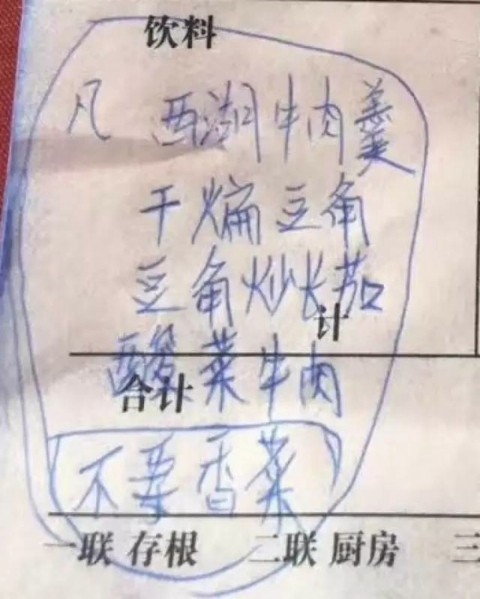 饮料
凡 西湖牛肉羹
干煸豆角
豆角炒长茄
计
酸菜牛肉
合计
不要香菜
一联 存根 二联 厨房 三